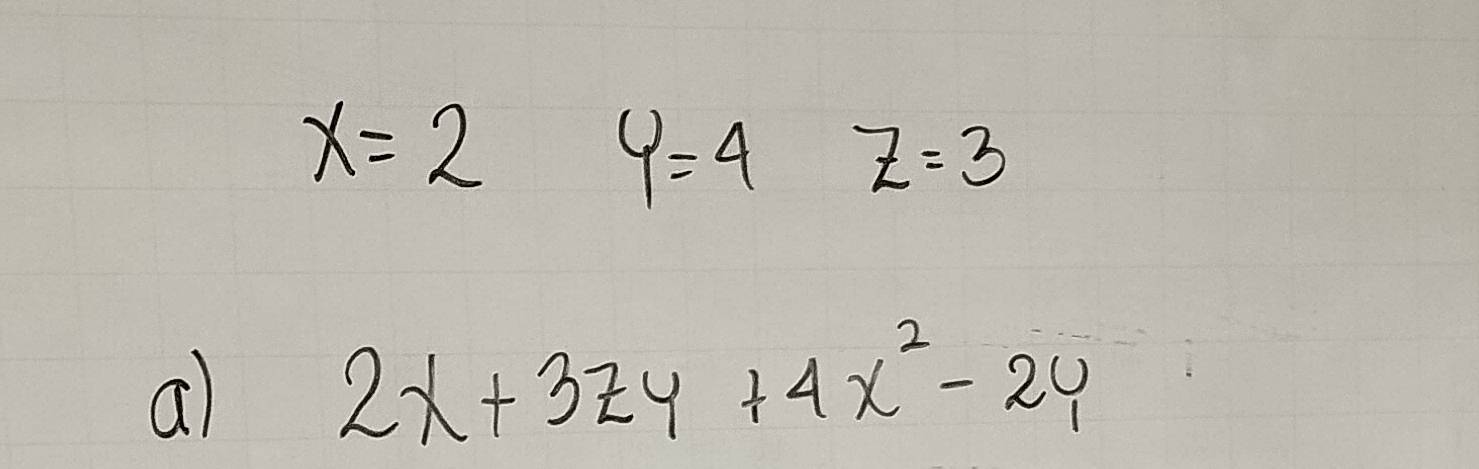 x=2 y=4 z=3
a) 2x+3zy+4x²-2y